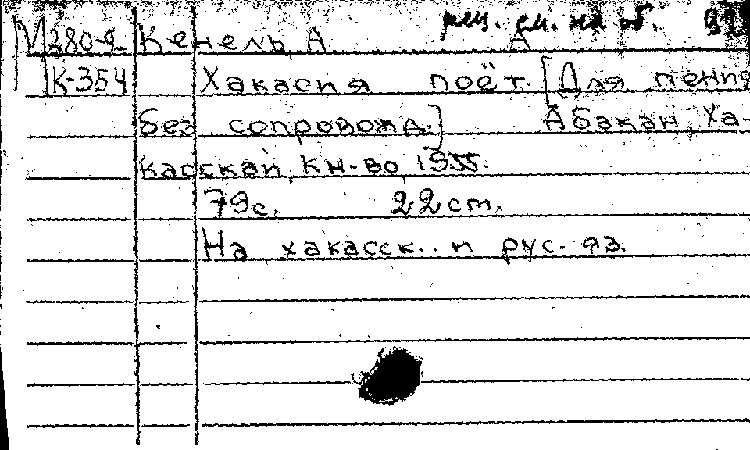 рец. см. на об.
М 280-2 Кенель, А. А.
К-354 Хакасия поёт. [Для пения
без сопровожд.] Абакан, Ха-
касское кн-во, 1955.
79 с. 22 см.
На хакасск.. и рус. яз.